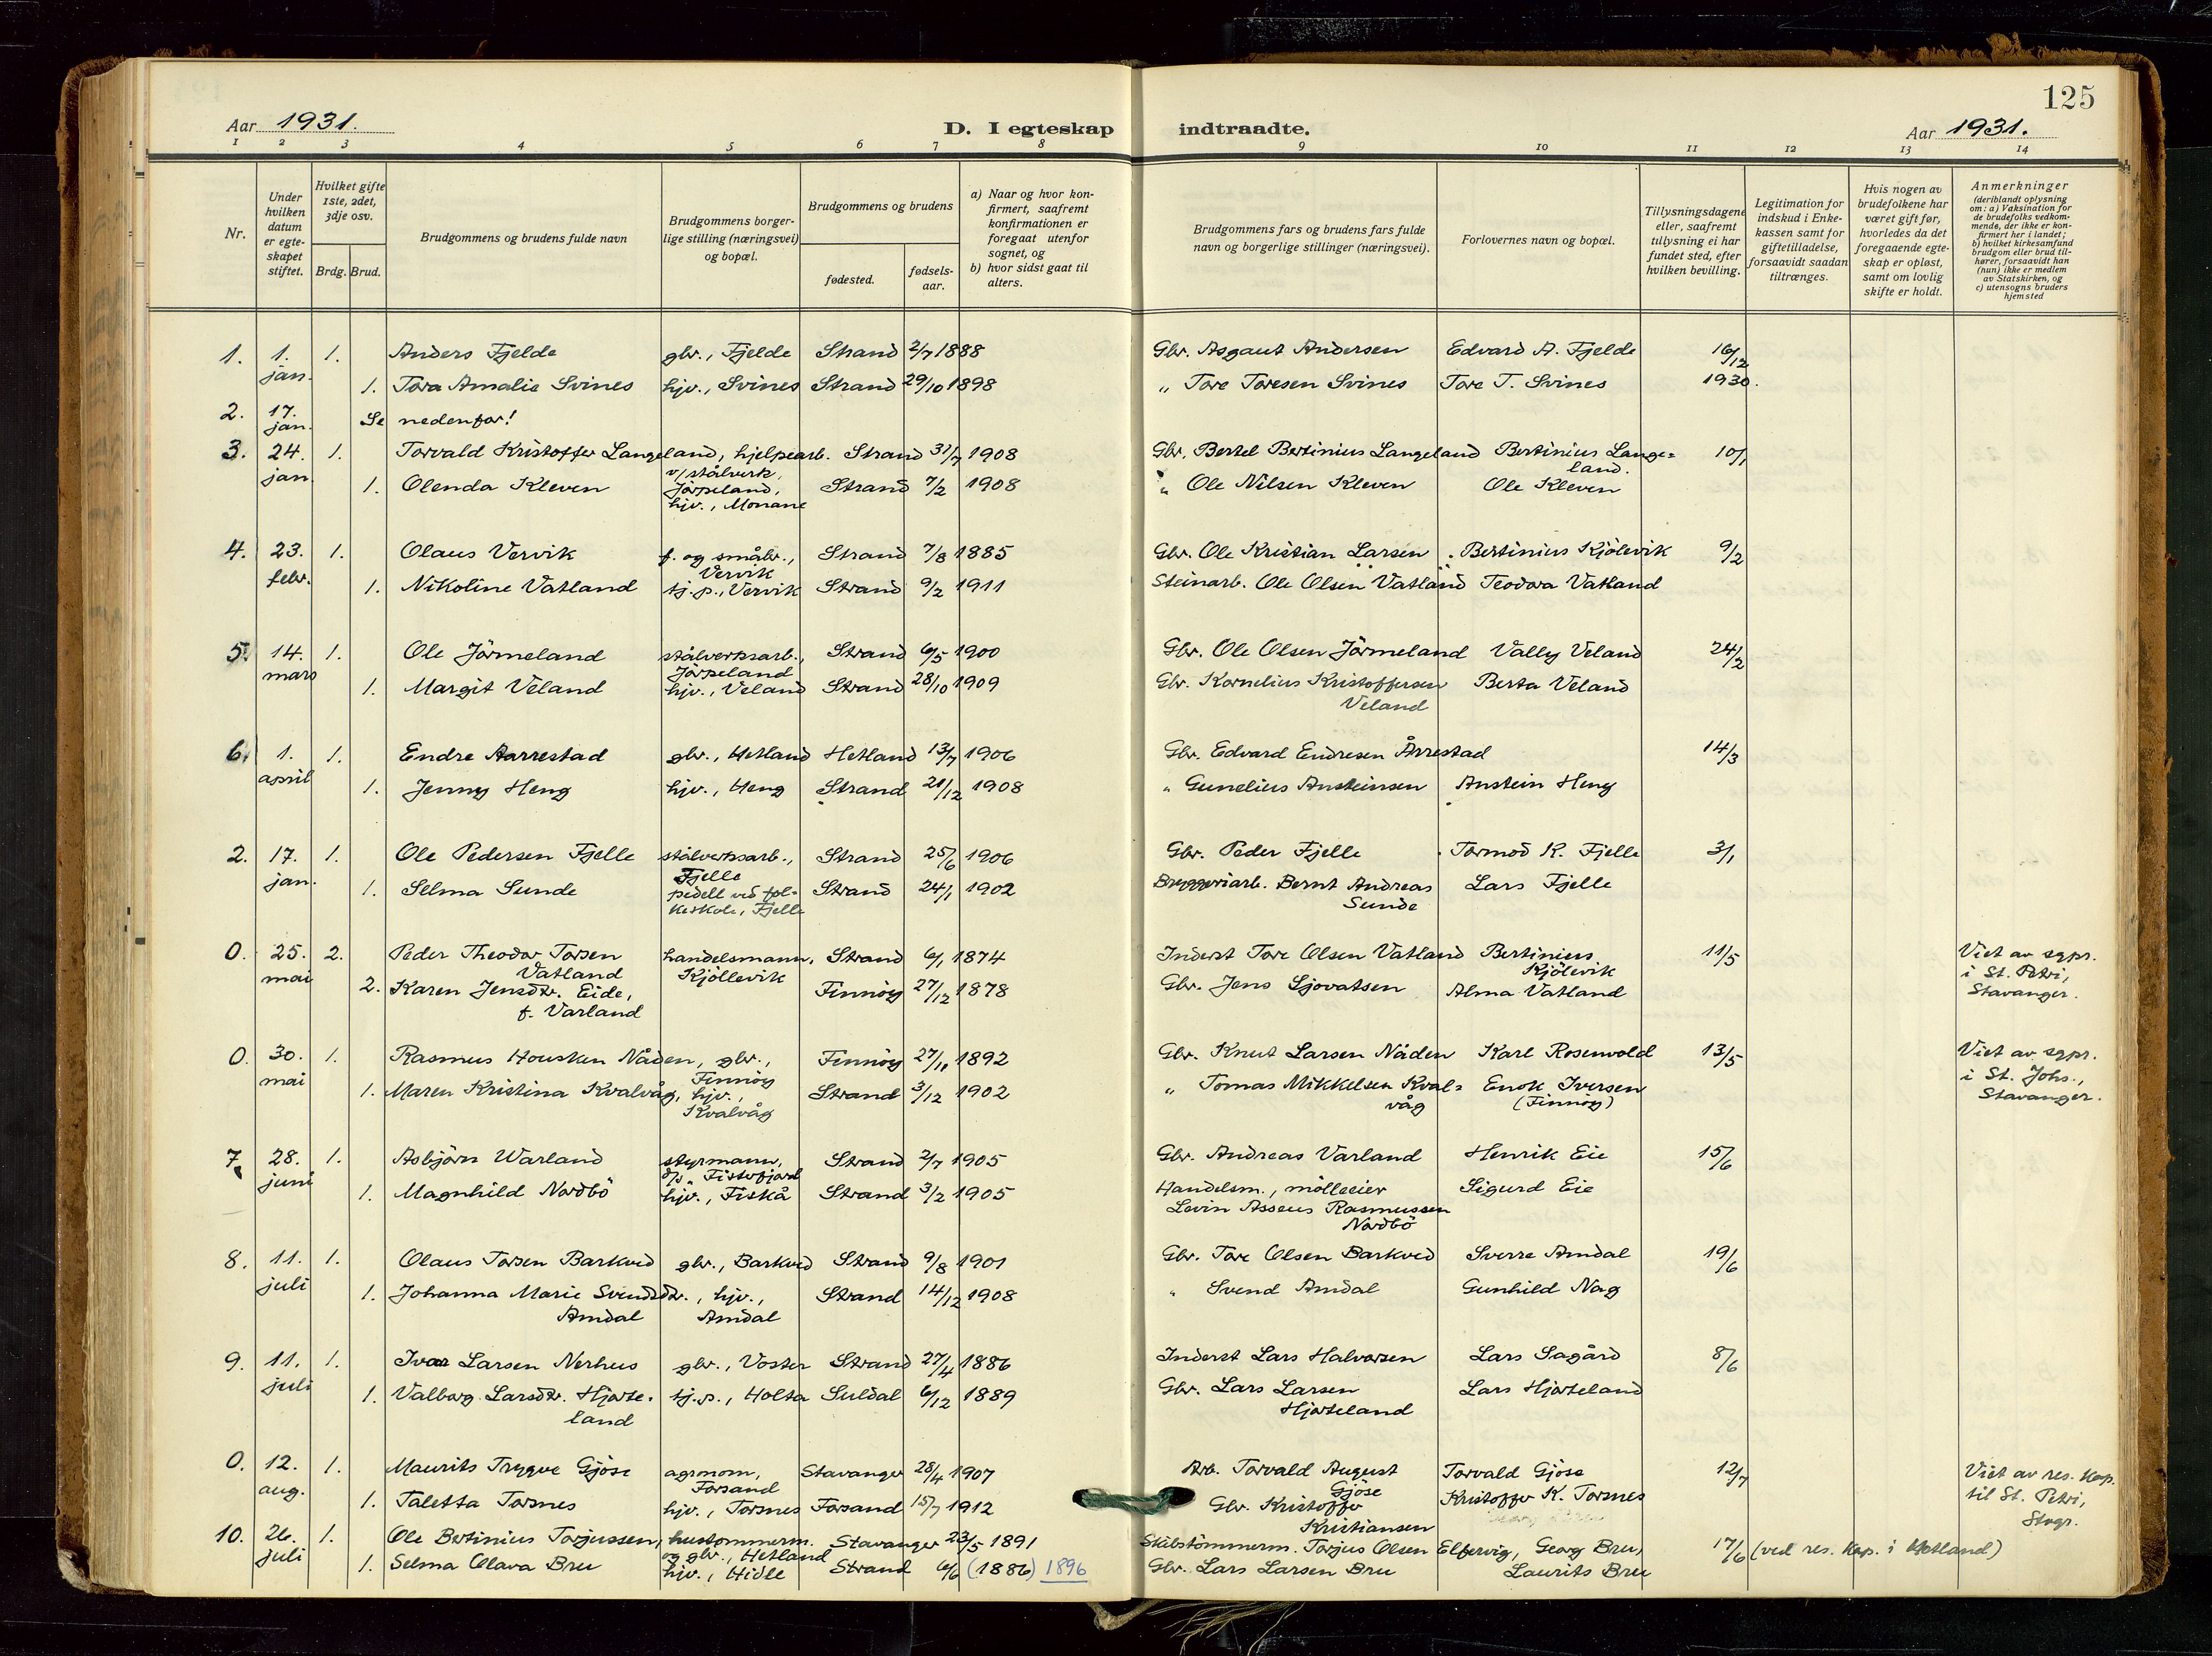 125
Aar 1931. D. I egteskap indtraadte. Aar 1931.
1 2 3 4 5 6 7 8 9 10 11 12 13 14
Nr.
Under hvilken datum er egteskapet stiftet.
Hvilket gifte 1ste, 2det, 3dje osv.
Brdg. Brud.
Brudgommens og brudens fulde navn
Brudgommens borgerlige stilling (næringsvei) og bopæl.
Brudgommens og brudens
fødested.
fødselsaar.
a) Naar og hvor konfirmert, saafremt konfirmationen er foregaat utenfor sognet, og
b) hvor sidst gaat til alters.
Brudgommens fars og brudens fars fulde navn og borgerlige stillinger (næringsvei).
Forlovernes navn og bopæl.
Tillysningsdagene eller, saafremt tillysning ei har fundet sted, efter hvilken bevilling.
Legitimation for indskud i Enkekassen samt for giftetilladelse, forsaavidt saadan tiltrænges.
Hvis nogen av brudefolkene har været gift før, hvorledes da det foregaaende egteskap er opløst, samt om lovlig skifte er holdt.
Anmerkninger (deriblandt oplysning om: a) Vaksination for de brudefolks vedkommende, der ikke er konfirmert her i landet; b) hvilket kirkesamfund brudgom eller brud tilhører, forsaavidt han (hun) ikke er medlem av Statskirken, og c) utensogns bruders hjemsted
1. 1. jan. 1. Anders Fjelde gbr., Fjelde Strand 2/7 1888 Gbr. Asgaut Andersen Edvard A. Fjelde 16/12 1930.
1. Tora Amalie Svines hjv., Svines Strand 29/10 1898 " Tore Toresen Svines Tore T. Svines
2. 17. jan. Se nedenfor!
3. 24. jan. 1. Torvald Kristoffer Langeland, hjelpearb. v/stålverk, Jørpeland, Strand 31/7 1908 Gbr. Bertel Bertinius Langeland Bertinius Langeland. 10/1
1. Olenda Kleven hjv., Monane Strand 7/2 1908 " Ole Nilsen Kleven Ole Kleven
4. 23. febr. 1. Olaus Vervik f. og småbr., Vervik Strand 7/8 1885 Gbr. Ole Kristian Larsen Bertinius Kjölevik 9/2
1. Nikoline Vatland tj.p., Vervik Strand 9/2 1911 Steinarb. Ole Olsen Vatland Teodora Vatland
5. 14. mars 1. Ole Jörmeland stålverksarb., Jörpeland Strand 6/5 1900 Gbr. Ole Olsen Jörmeland Vally Veland 24/2
1. Margit Veland hjv., Veland Strand 28/10 1909 Gbr. Kornelius Kristoffersen Veland Berta Veland
6. 1. april 1. Endre Aarrestad gbr., Hetland Hetland 13/7 1906 Gbr. Edvard Endresen Årrestad 14/3
1. Jenny Heng hjv., Heng Strand 21/12 1908 " Gunelius Ansteinsen Anstein Heng
2. 17. jan. 1. Ole Pedersen Fjelle stålverksarb., Fjelle Strand 25/6 1906 Gbr. Peder Fjelle Tormod K. Fjelle 3/1
1. Selma Sunde pedell ved folkeskole, Fjelle Strand 24/1 1902 Bryggeriarb. Bernt Andreas Sunde Lars Fjelle
0. 25. mai 2. Peder Theodor Torsen Vatland handelsmann, Kjöllevik Strand 6/1 1874 Inderst Tore Olsen Vatland Bertinius Kjölevik 11/5 Viet av sgpr. i St. Petri, Stavanger.
2. Karen Jensdtr. Eide, f. Varland Finnöy 27/12 1878 Gbr. Jens Sjovatsen Alma Vatland
0. 30. mai 1. Rasmus Housken Nåden, gbr., Finnöy Finnöy 27/11 1892 Gbr. Knut Larsen Nåden Karl Rosenvold 13/5 Viet av sgpr. i St. Johs., Stavanger.
1. Maren Kristina Kvalvåg, hjv., Kvalvåg Strand 3/12 1902 " Tomas Mikkelsen Kvalvåg Enok Iversen (Finnöy)
7. 28. juni 1. Asbjörn Warland styrmann, d/s „Fistefjord Strand 2/7 1905 Gbr. Andreas Varland Henrik Eie 15/6
1. Magnhild Nordbö hjv., Fiskå Strand 3/2 1905 Handelsm., mölleeier Levin Asseus Rasmussen Nordbö Sigurd Eie
8. 11. juli 1. Olaus Torsen Barkved gbr., Barkved Strand 9/8 1901 Gbr. Tore Olsen Barkved Sverre Amdal 19/6
1. Johanna Marie Svendsdtr. Amdal, hjv., Amdal Strand 14/12 1908 " Svend Amdal Gunhild Nag
9. 11. juli 1. Ivar Larsen Nerhus gbr., Voster Strand 27/4 1886 Inderst Lars Halvorsen Lars Sagård 8/6
1. Valborg Larsdtr. Hjorteland tj.p., Holta Suldal 6/12 1889 Gbr. Lars Larsen Hjorteland Lars Hjorteland
0. 12. aug. 1. Maurits Trygve Gjöse agronom, Forsand Stavanger 28/4 1907 Arb. Torvald August Gjöse Torvald Gjöse 12/7 Viet av res. kap. til St. Petri, Stvgr.
1. Taletta Tornes hjv., Tornes Forsand 15/7 1912 Gbr. Kristoffer Kristiansen Kristoffer K. Tornes
10. 26. juli 1. Ole Bertinius Torjussen, hustömmerm. og gbr., Hetland Stavanger 23/5 1891 Skibstömmerm. Torjus Olsen Elfervig, Georg Bru, 17/6 (ved res. kap. i Hetland)
1. Selma Olava Bru hjv., Hidle Strand 6/6 (1886) 1896 Gbr. Lars Larsen Bru Laurits Bru